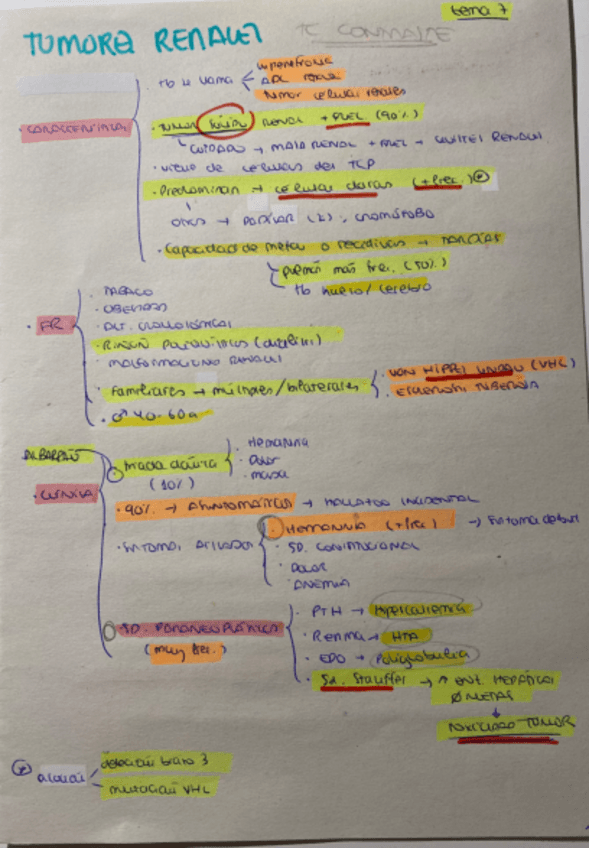 tema 7
TUMORES RENALES TC CONTRASTE
· tb se llama
hipernefroma
ADC renal
tumor células renales
· CARACTERÍSTICAS
· TUMOR SÓLIDO RENAL + FREC (90%)
CUIDADO → MASA RENAL + FREC → QUISTES RENALES
· viene de células del TCP
· Predominan → células claras (+ frec.) *
otros → PAPILAR (2º), cromófobo
· Capacidad de metas o recidivas → TARDÍAS
pulmón más frec. (50%)
tb hueso/cerebro
· FR
· TABACO
· OBESIDAD
· ALT. CROMOSÓMICAS
· RIÑÓN POLIQUÍSTICOS (diálisis)
· MALFORMACIONES RENALES
· Familiares → múltiples/bilaterales
VON HIPPEL LINDAU (VHL)
ESCLEROSIS TUBEROSA
· ♂ 40-60a
· CLÍNICA
· triada clásica
(10%)
· Hematuria
· Dolor
· masa
· 90% → ASINTOMÁTICOS → HALLAZGO INCIDENTAL
· SÍNTOMAS AISLADOS
· HEMATURIA (+ frec) → Síntoma debut
· SD. CONSTITUCIONAL
· DOLOR
· ANEMIA
· SD. PARANEOPLÁSICOS
(muy frec.)
· PTH → Hipercalcemia
· Renina → HTA
· EPO → Poliglobulia
· Sd. Stauffer → ↑ ENZ. HEPÁTICAS
Ø METAS
↓
TOXICIDAD TUMOR
* delección brazo 3
mutación VHL